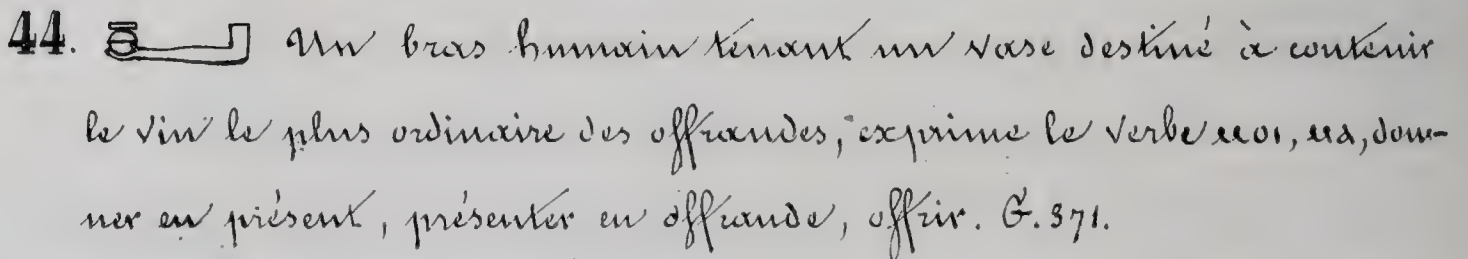 44. 𓂞 Un bras humain tenant un vase destiné à contenir
le vin le plus ordinaire des offrandes, exprime le verbe ⲙⲟⲓ, ⲙⲁ, don-
ner en présent, présenter en offrande, offrir. G. 371.